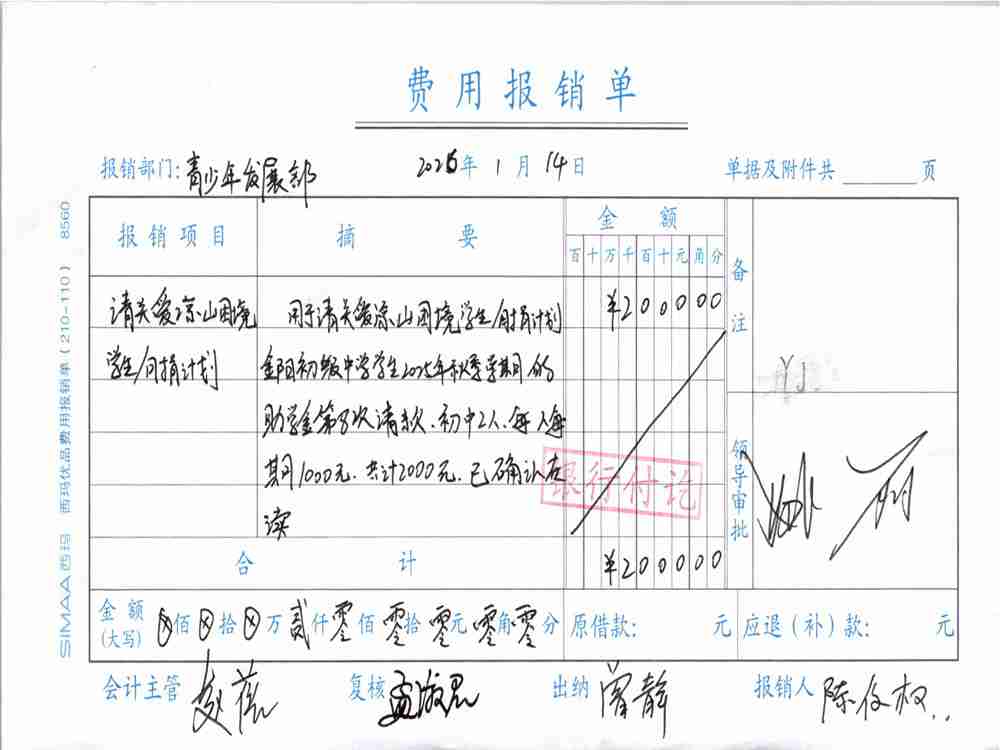 费用报销单
报销部门：青少年发展部 2026年 1月 14日 单据及附件共 页
报销项目 摘要 金额 备注
百十万千百十元角分
请关爱凉山困境 用于请关爱凉山困境学生/月捐计划 ¥200000
学生/月捐计划 金阳初级中学学生2025年秋季学期的
助学金第8次请款.初中2人.每人每
期1000元.共计2000元.已确认在
读
银行付讫
领导审批
合计 ¥200000
金额(大写) ⊗佰⊗拾⊗万贰仟零佰零拾零元零角零分 原借款： 元 应退（补）款： 元
会计主管 赵蓓 复核 出纳 曾静 报销人
SIMAA西玛 西玛优品费用报销单（210-110） 8560